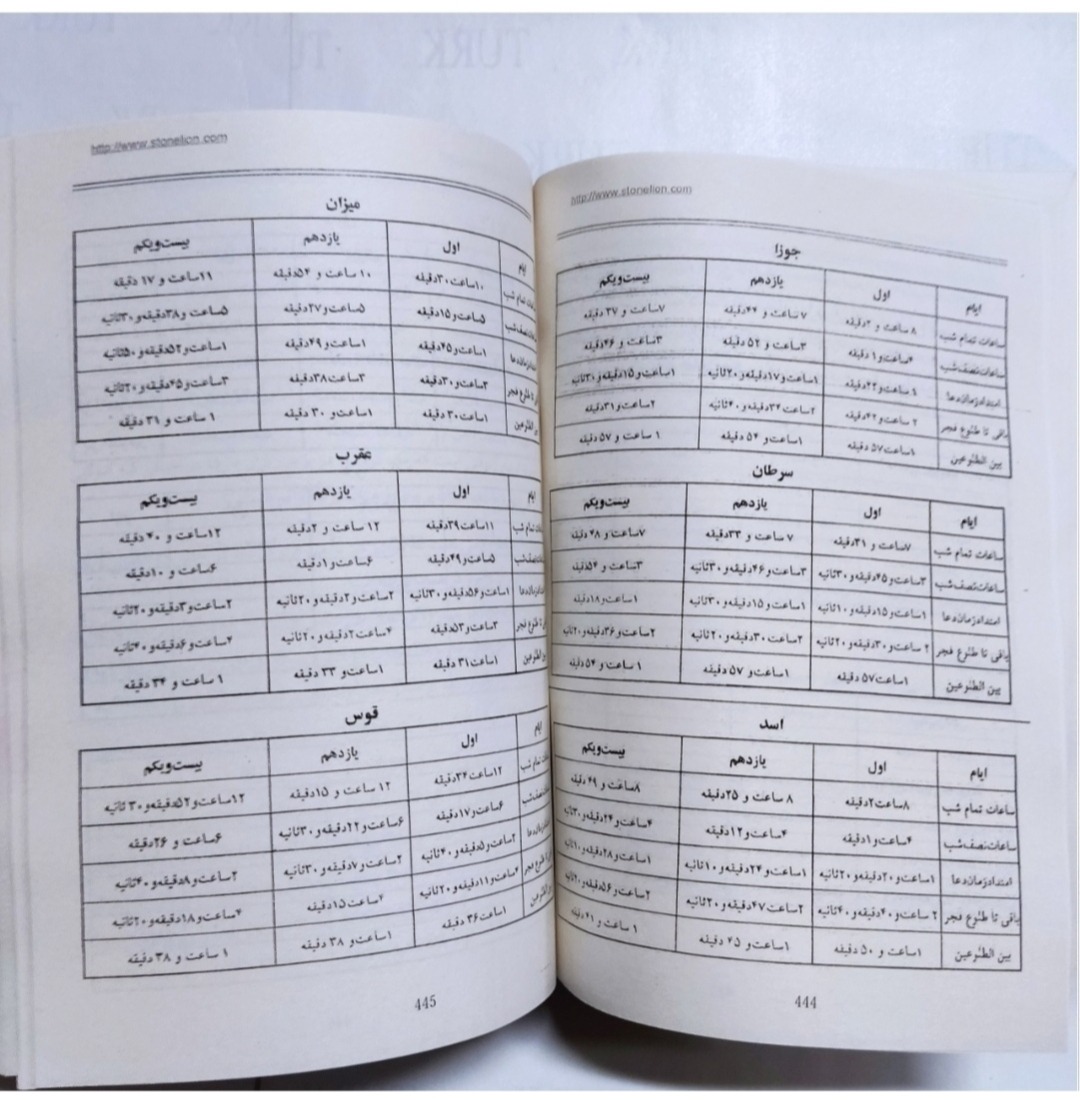 http://www.stonelion.com
جوزا
ایام اول یازدهم بیست‌ویکم
ساعات تمام شب ۸ ساعت و ۲دقیقه ۷ ساعت و ۴۴دقیقه ۷ساعت و ۳۷ دقیقه
ساعات‌نصف‌شب ۴ساعت‌و۱ دقیقه ۳ساعت و ۵۲ دقیقه ۳ساعت و ۴۶دقیقه
امتدادزمان‌دعا ۱ساعت‌و۲۲دقیقه ۱ساعت‌و۱۷دقیقه‌و۲۰ثانیه ۱ساعت‌و۱۵دقیقه‌و۳۰ثانیه
باقی تا طلوع فجر ۲ ساعت‌و۴۲دقیقه ۲ساعت ۳۴دقیقه‌و۴۰ثانیه ۲ساعت‌و۳۱دقیقه
بین الطلوعین ۱ساعت۵۷ دقیقه ۱ساعت‌و ۵۴ دقیقه ۱ ساعت و ۵۷ دقیقه
سرطان
ایام اول یازدهم بیست‌ویکم
ساعات تمام شب ۷ساعت و ۳۱دقیقه ۷ ساعت و ۳۳دقیقه ۷ساعت و ۴۸ دقیقه
ساعات‌نصف‌شب ۳ساعت‌و۴۵دقیقه‌و۳۰ثانیه ۳ساعت‌و۴۶دقیقه‌و۳۰ثانیه ۳ساعت و ۵۴دقیقه
امتدادزمان‌دعا ۱ساعت‌و۱۵دقیقه‌و۱۰ثانیه ۱ساعت‌و۱۵دقیقه‌و۳۰ثانیه ۱ساعت‌و۱۸دقیقه
باقی تا طلوع فجر ۲ ساعت‌و۳۰دقیقه‌و۲۰ثانیه ۲ساعت ۳۰دقیقه‌و۲۰ثانیه ۲ساعت‌و۳۶دقیقه‌و۲۰ثانیه
بین الطلوعین ۱ساعت۵۷ دقیقه ۱ساعت‌و ۵۷ دقیقه ۱ ساعت و ۵۴ دقیقه
اسد
ایام اول یازدهم بیست‌ویکم
ساعات تمام شب ۸ساعت۲دقیقه ۸ ساعت و ۲۵دقیقه ۸ساعت و ۴۹ دقیقه
ساعات‌نصف‌شب ۴ساعت‌و۱دقیقه ۴ساعت‌و۱۲دقیقه ۴ساعت‌و۲۴دقیقه‌و۳۰ثانیه
امتدادزمان‌دعا ۱ساعت‌و۲۰دقیقه‌و۲۰ثانیه ۱ساعت‌و۲۴دقیقه‌و۱۰ثانیه ۱ساعت‌و۲۸دقیقه‌و۱۰ثانیه
باقی تا طلوع فجر ۲ ساعت‌و۴۰دقیقه‌و۴۰ثانیه ۲ساعت‌و۴۷دقیقه‌و۲۰ثانیه ۲ساعت‌و۵۶دقیقه‌و۲۰ثانیه
بین الطلوعین ۱ساعت و ۵۰ دقیقه ۱ساعت‌و ۴۵ دقیقه ۱ ساعت و ۴۱دقیقه
444
http://www.stonelion.com
میزان
ایام اول یازدهم بیست‌ویکم
تمام شب ۱۰ساعت۳۰دقیقه ۱۰ ساعت و ۵۴دقیقه ۱۱ساعت و ۱۷ دقیقه
نصف‌شب ۵ساعت‌و۱۵دقیقه ۵ساعت‌و۲۷دقیقه ۵ساعت و۳۸دقیقه‌و۳۰ثانیه
۱ساعت‌و۴۵دقیقه ۱ساعت‌و۴۹دقیقه ۱ساعت‌و۵۲دقیقه‌و۵۰ثانیه
تا طلوع فجر ۳ساعت‌و۳۰دقیقه ۳ساعت۳۸دقیقه ۳ساعت‌و۴۵دقیقه‌و۲۰ثانیه
۱ساعت۳۰ دقیقه ۱ساعت‌و ۳۰ دقیقه ۱ ساعت و ۳۱ دقیقه
عقرب
ایام اول یازدهم بیست‌ویکم
تمام شب ۱۱ساعت۳۹دقیقه ۱۲ ساعت و ۲دقیقه ۱۲ساعت و ۴۰ دقیقه
نصف‌شب ۵ساعت‌و۴۹دقیقه ۶ساعت‌و۱دقیقه ۶ساعت و ۱۰دقیقه
۱ساعت‌و۵۶دقیقه‌و۳۰ثانیه ۲ساعت‌و۲دقیقه‌و۲۰ثانیه ۲ساعت‌و۳دقیقه‌و۲۰ثانیه
تا طلوع فجر ۳ساعت‌و۵۳دقیقه ۴ساعت۲دقیقه‌و۲۰ثانیه ۴ساعت‌و۶دقیقه‌و۴۰ثانیه
۱ساعت۳۱ دقیقه ۱ساعت‌و ۳۳ دقیقه ۱ ساعت و ۳۴ دقیقه
قوس
ایام اول یازدهم بیست‌ویکم
تمام شب ۱۲ساعت۳۴دقیقه ۱۲ ساعت و ۱۵دقیقه ۱۲ساعت‌و۵۲دقیقه‌و۳۰ ثانیه
۶ساعت‌و۱۷دقیقه ۶ساعت‌و۲۲دقیقه‌و۳۰ثانیه ۶ساعت و ۲۶دقیقه
۲ساعت‌و۵دقیقه‌و۴۰ثانیه ۲ساعت‌و۷دقیقه‌و۳۰ثانیه ۲ساعت‌و۸دقیقه‌و۴۰ثانیه
طلوع فجر ۴ساعت‌و۱۱دقیقه‌و۲۰ثانیه ۴ساعت۱۵دقیقه ۴ساعت‌و۱۸دقیقه‌و۲۰ثانیه
۱ساعت۳۶ دقیقه ۱ساعت‌و ۳۸ دقیقه ۱ ساعت و ۳۸ دقیقه
445